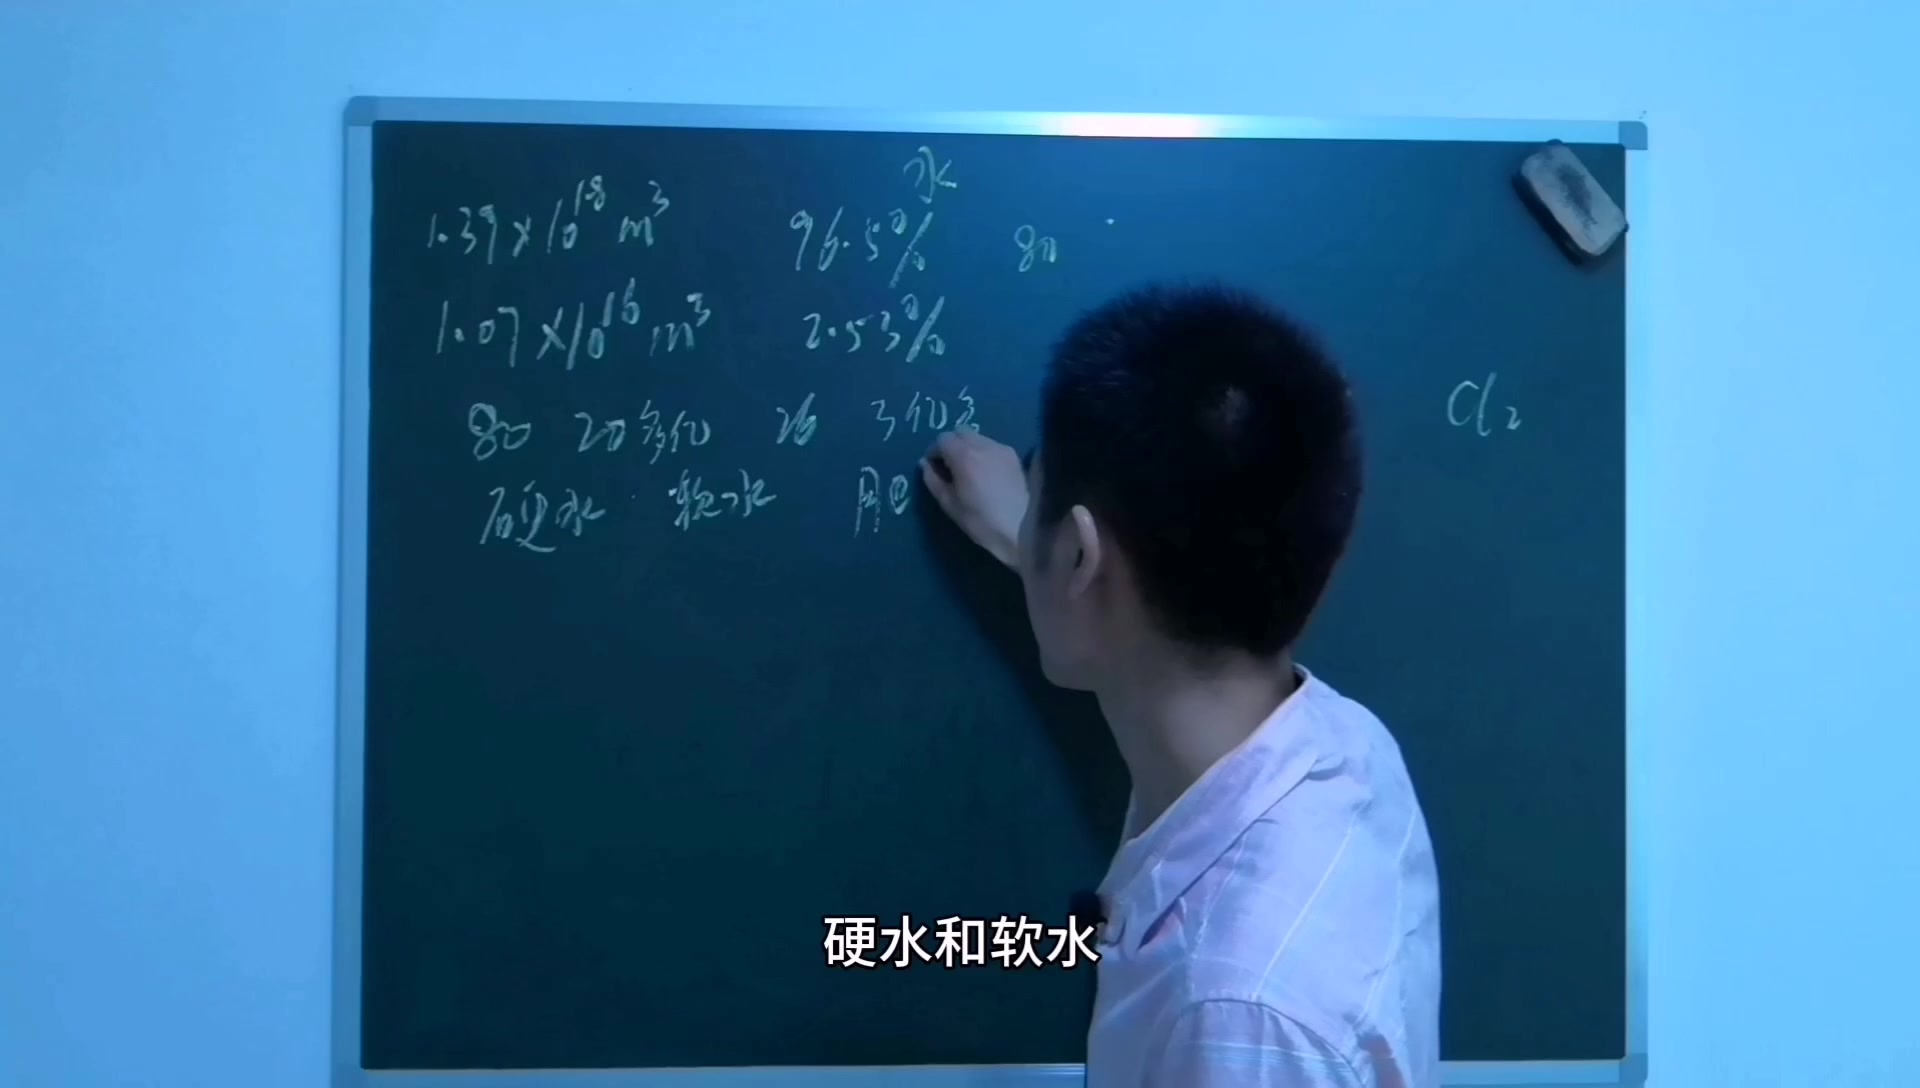 水
1.39×10¹⁸ m³ 96.5% 80
1.07×10¹⁶ m³ 2.53%
80 20多亿 26 3亿多
Cl₂
硬水 软水 用
硬水和软水